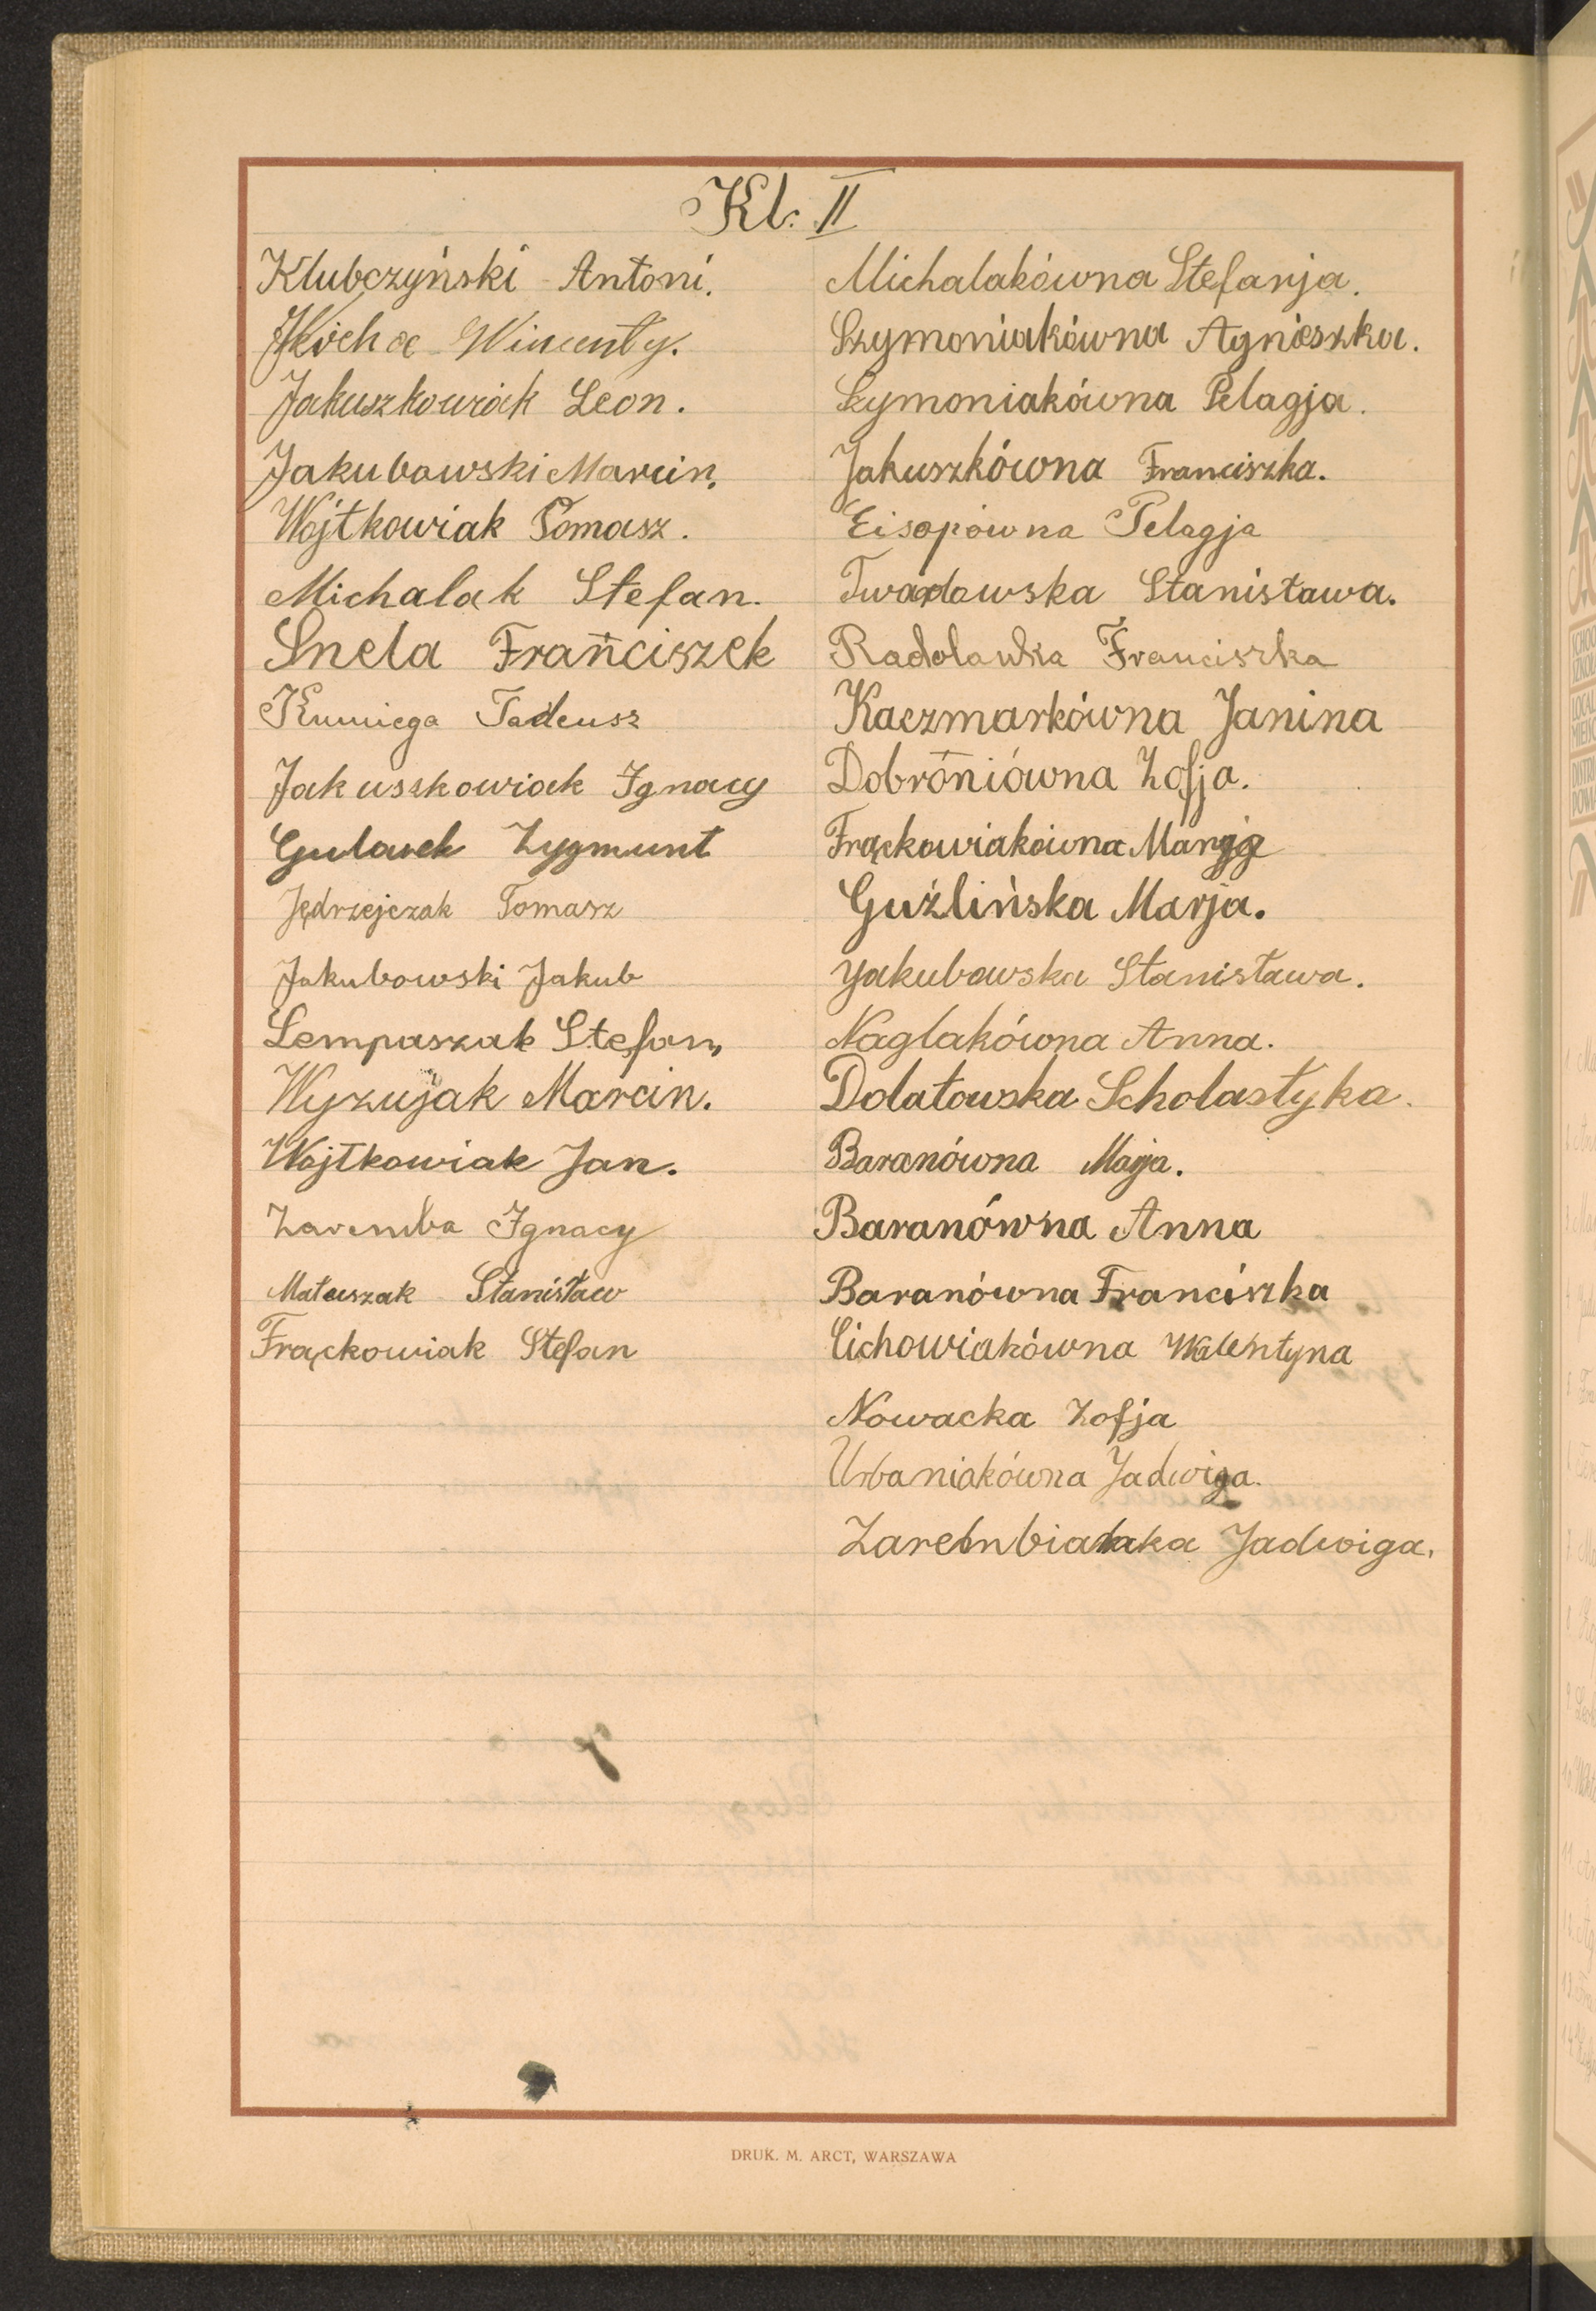 Kl. II
Klubczyński Antoni.
Wincenty.
Jakuszkowiak Leon.
Jakubowski Marcin.
Wojtkowiak Tomasz.
Michalak Stefan.
Snela Franciszek
Kumiega Tadeusz
Jakuszkowiak Ignacy
Zygmunt
Jędrzejczak Tomasz
Jakubowski Jakub
Lempaszak Stefan,
Wyzujak Marcin.
Wojtkowiak Jan.
Zaremba Ignacy
Matuszak Stanisław
Frąckowiak Stefan
Michalakówna Stefanja.
Szymoniakówna Agnieszka.
Szymoniakówna Pelagja.
Jakuszkówna Franciszka.
Eisopówna Pelagja
Twardowska Stanisława.
Franciszka
Kaczmarkówna Janina
Dobróniówna Zofja.
Frąckowiakówna Marja
Guźlińska Marja.
Yakubowska Stanisława.
Naglakówna Anna.
Dolatowska Scholastyka.
Baranówna Marja.
Baranówna Anna
Baranówna Franciszka
Cichowiakówna Walentyna
Nowacka Zofja
Urbaniakówna Jadwiga.
Jadwiga.
DRUK. M. ARCT, WARSZAWA